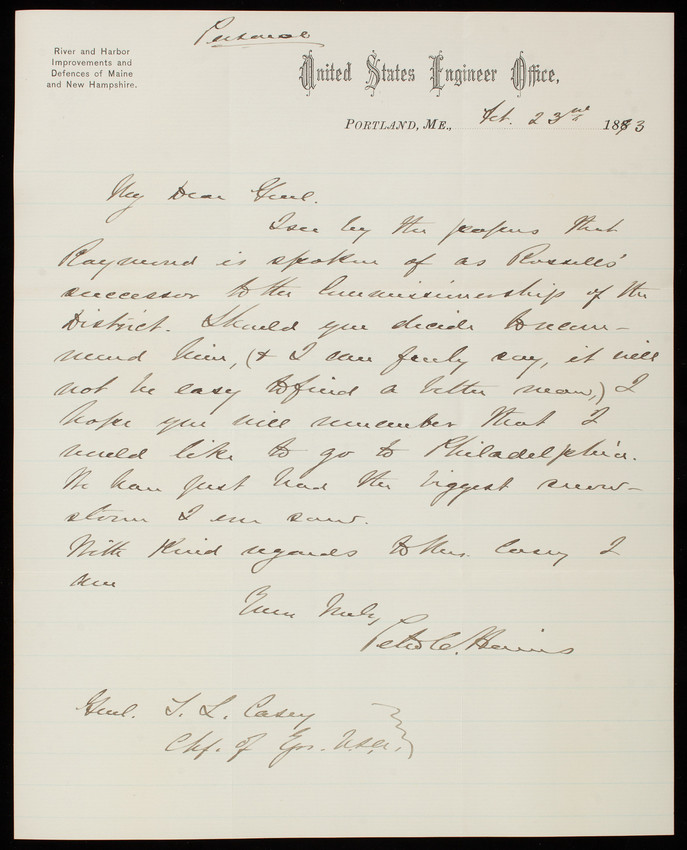 Personal
River and Harbor
Improvements and
Defences of Maine
and New Hampshire.
United States Engineer Office,
PORTLAND, ME., Feb. 23rd 1893
My Dear Genl.
I see by the papers that
Raymond is spoken of as Rossell's
successor to the Commissionership of the
District. Should you decide to recom-
mend him, (& I can freely say, it will
not be easy to find a better man,) I
hope you will remember that I
would like to go to Philadelphia.
We have just had the biggest snow-
storm I ever saw.
With Kind regards to Mrs. Casey I
am
Yours Truly,
Peter C. Hains
Genl. T. L. Casey
Chf. of Egrs. U.S.A.